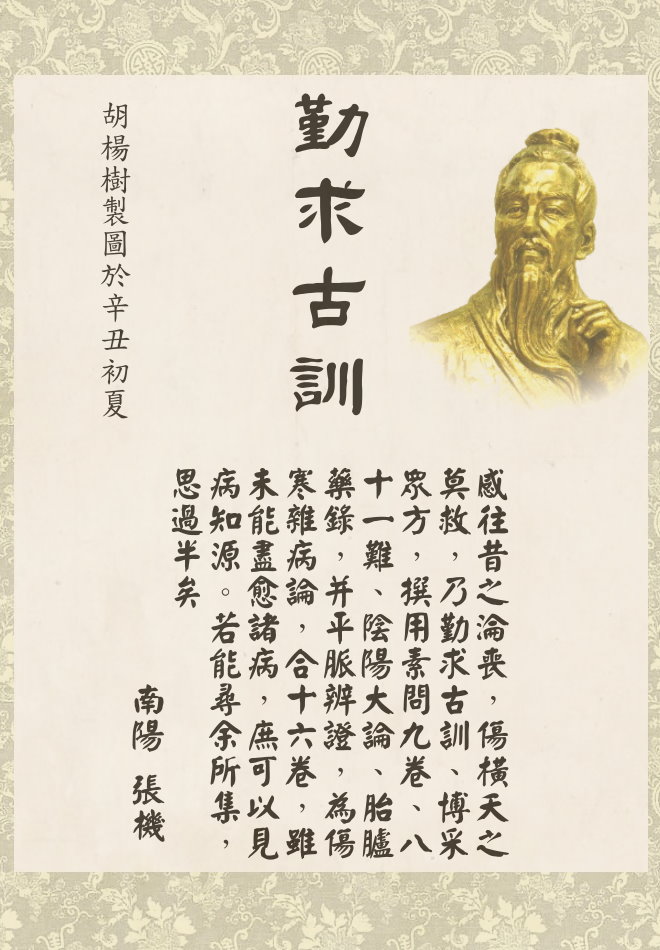 勤求古訓
感往昔之淪喪，傷橫天之
莫救，乃勤求古訓、博采
眾方，撰用素問九卷、八
十一難、陰陽大論、胎臚
藥錄，并平脈辨證，為傷
寒雜病論，合十六卷，雖
未能盡愈諸病，庶可以見
病知源。若能尋余所集，
思過半矣
南陽 張機
胡楊樹製圖於辛丑初夏